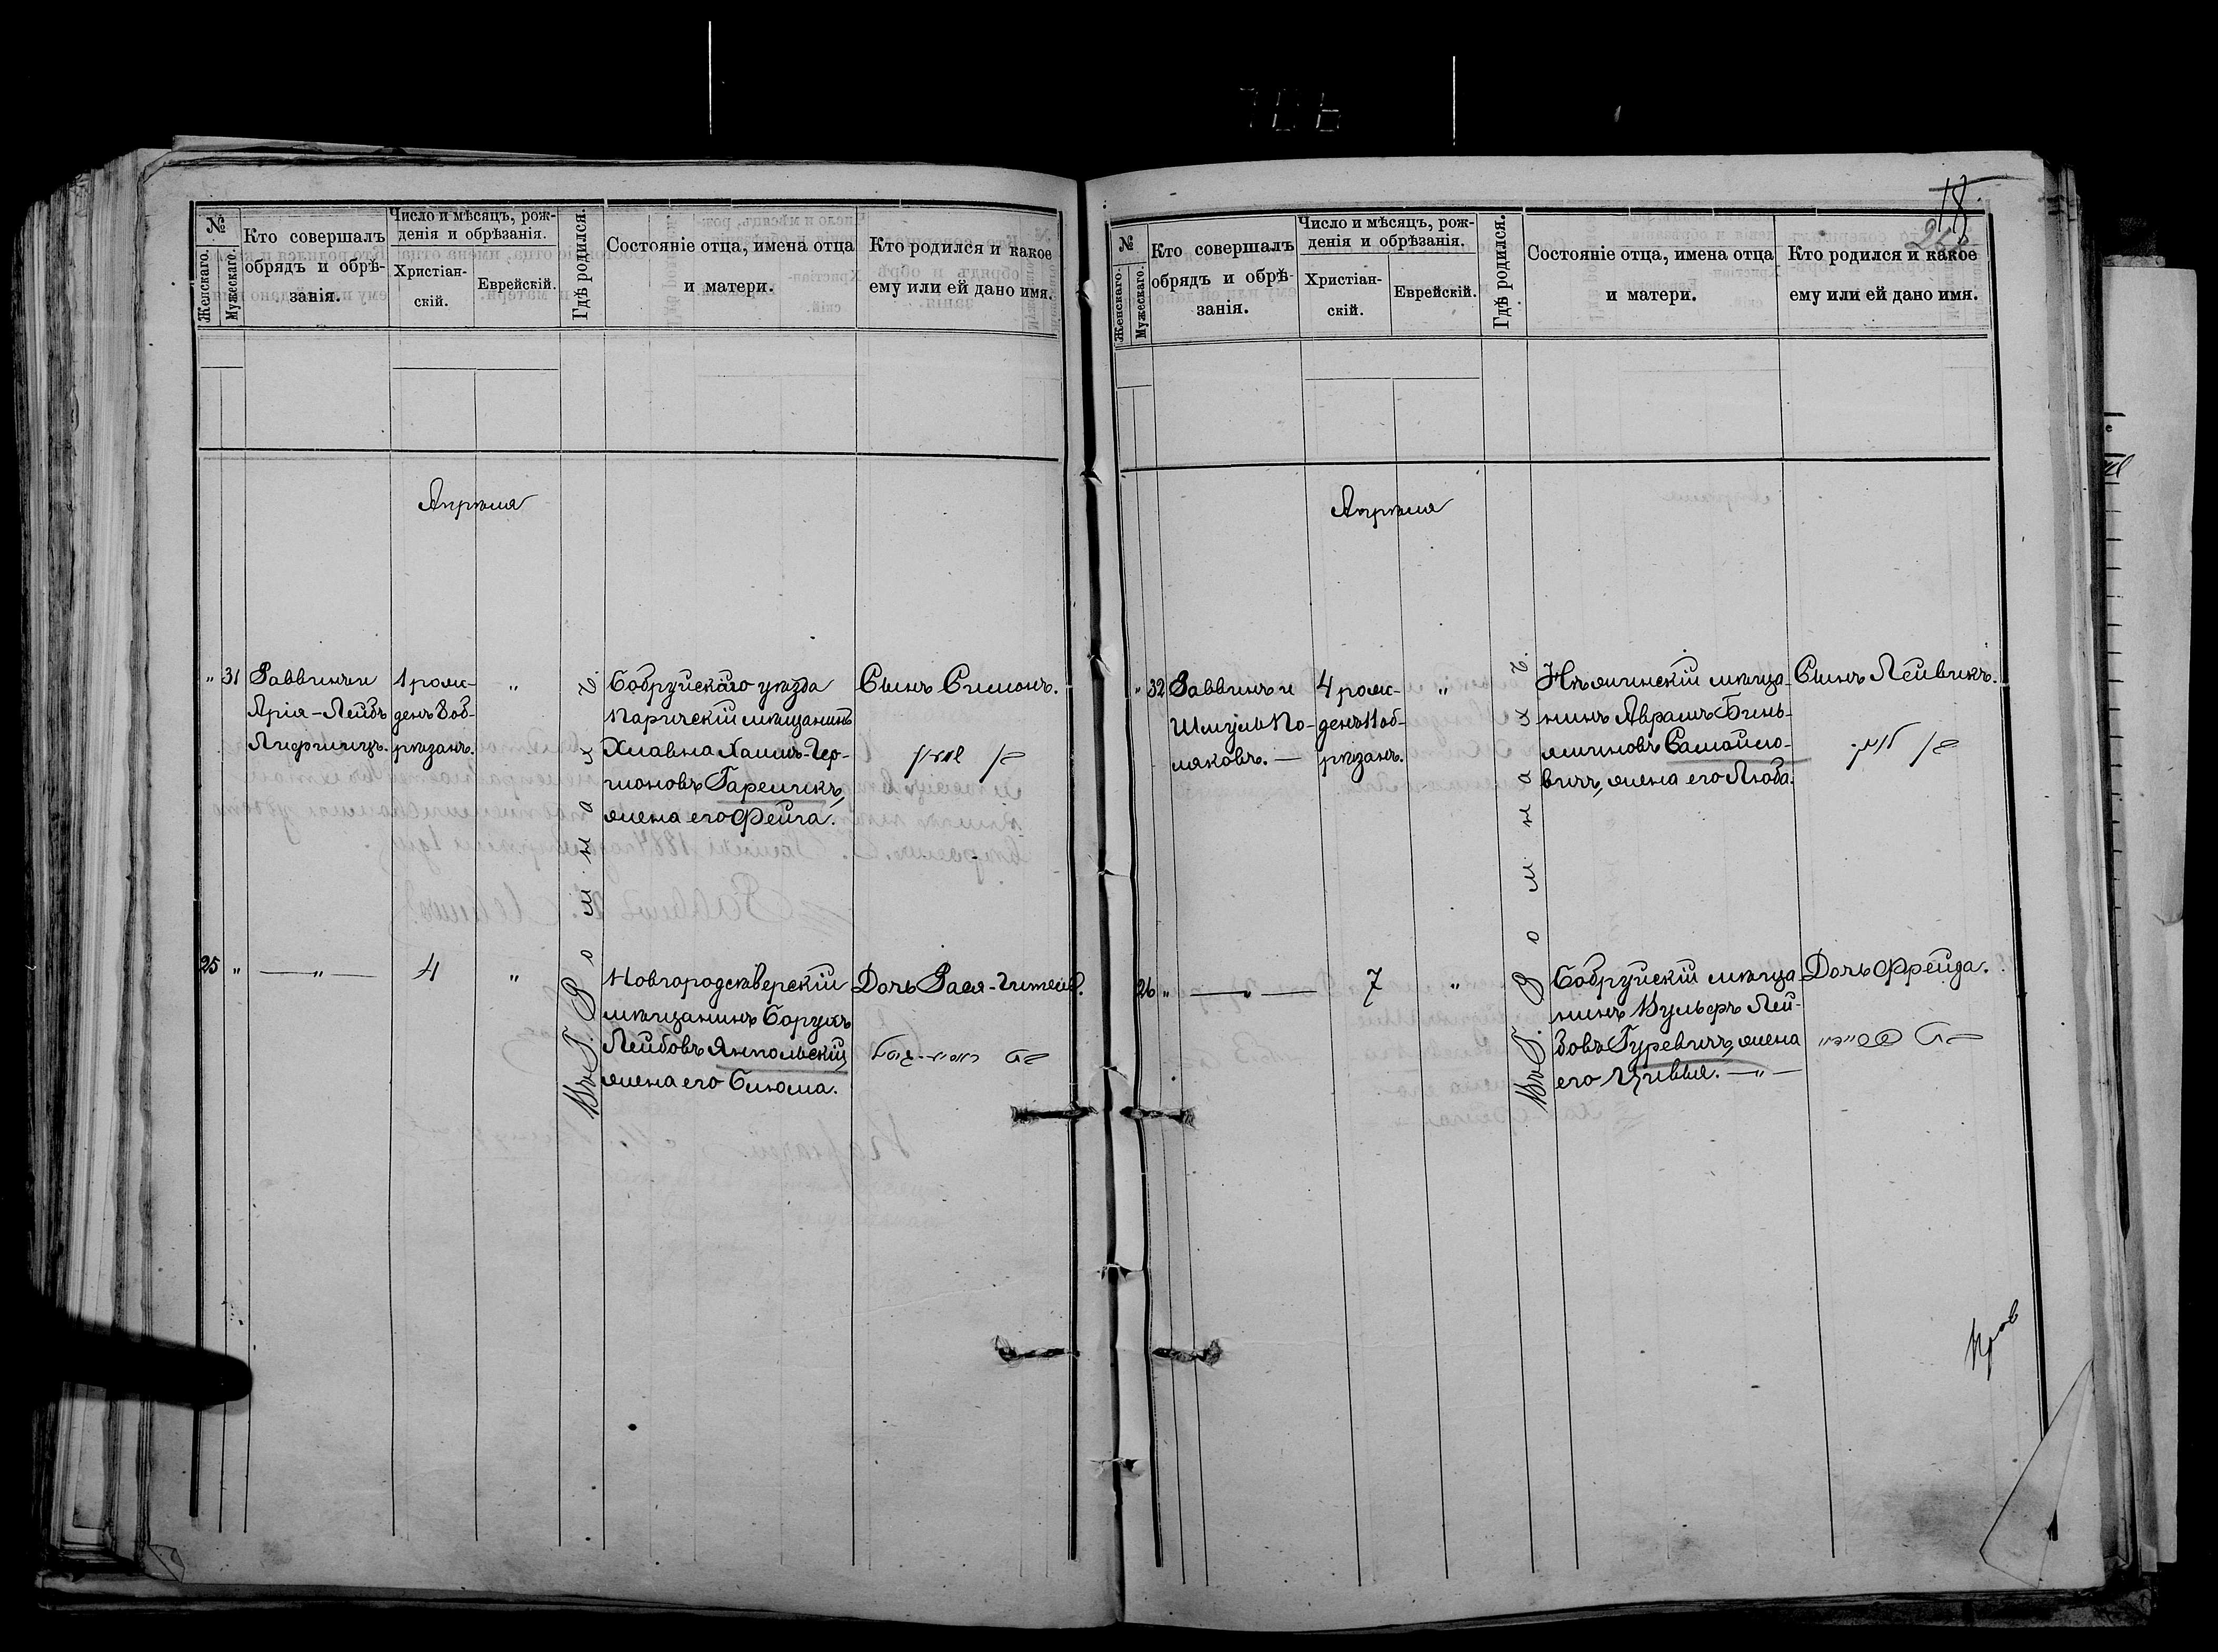 №
Женскаго.
Мужескаго.
Кто совершалъ
обрядъ и обрѣ-
занія.
Число и мѣсяцъ, рож-
денія и обрѣзанія.
Христіан-
скій.
Еврейскій.
Гдѣ родился.
Состояніе отца, имена отца
и матери.
Кто родился и какое
ему или ей дано имя.
Апрѣля
" 31
Раввинъ и
Арія-Лейбъ
Лифшицъ.
1 рож-
денъ 8 об-
рѣзанъ.
"
Въ Г. Ромнахъ.
Бобруйскаго уѣзда
Паричскій мѣщанинъ
Хлавна Хаимъ-Гер-
шоновъ Гареликъ,
жена его Фейга.
Сынъ Симонъ.
בן שמעון
25 "
—"—
4
"
Новгородсѣверскій
мѣщанинъ Борухъ
Лейбовъ Янпольскій,
жена его Сиома.
Дочь Раса-Гителъ.
בת
18
№
Женскаго.
Мужескаго.
Кто совершалъ
обрядъ и обрѣ-
занія.
Число и мѣсяцъ, рож-
денія и обрѣзанія.
Христіан-
скій.
Еврейскій.
Гдѣ родился.
Состояніе отца, имена отца
и матери.
Кто родился и какое
ему или ей дано имя.
Апрѣля
" 32
Раввинъ и
Шмуль По-
ляковъ. —
4 рож-
денъ 11 об-
рѣзанъ.
"
Въ Г. Ромнахъ.
Нѣжинскій мѣща-
нинъ Аврамъ Бинь-
миновъ Самойло-
вичъ, жена его Люба.
Сынъ Лейвикъ.
בן לוי
26 "
—"—
7
"
Бобруйскій мѣща-
нинъ Вульфъ Лей-
бовъ Гуревичъ, жена
его Цивья. —"—
Дочь Фрейда.
בת פריידא